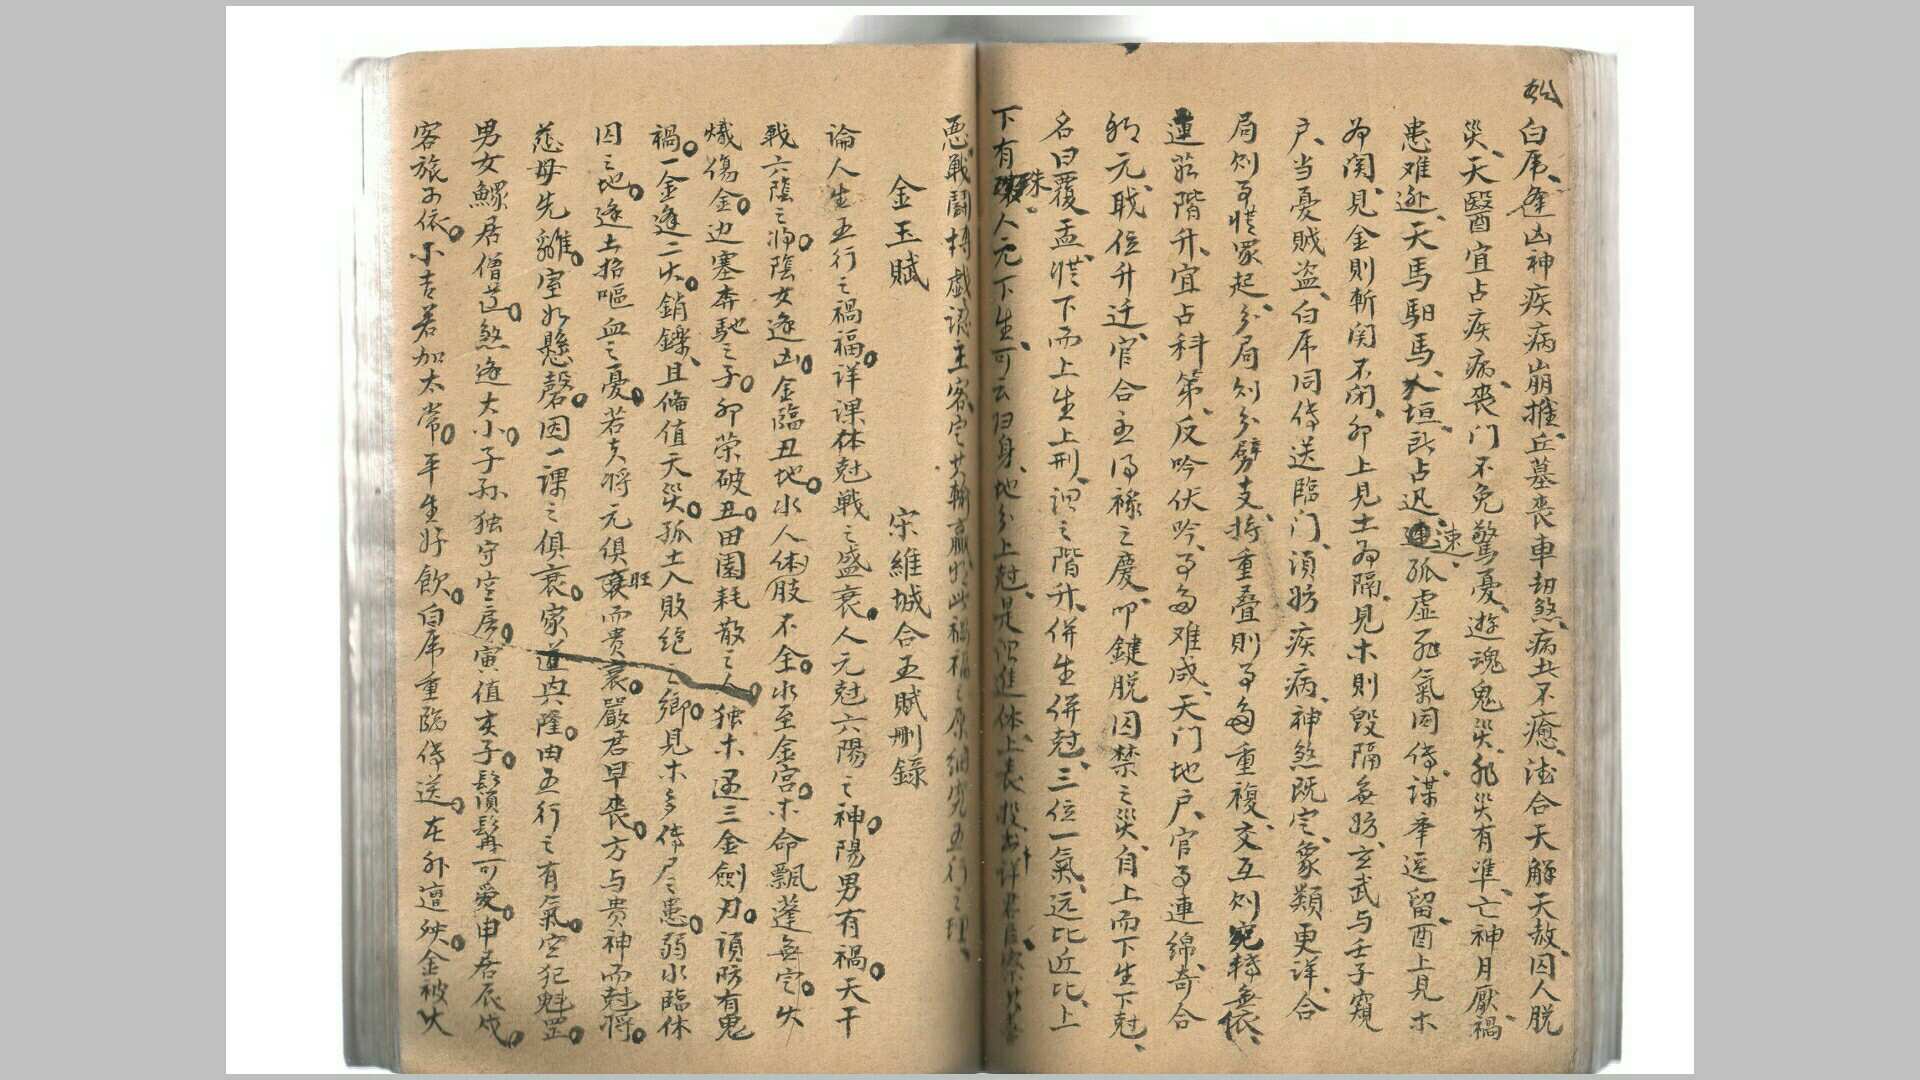 白虎逢凶神疾病崩摧丘墓喪車刧煞病北不癒德合天解天赦囚人脱
災天醫宜占疾病喪门不免驚憂遊魂鬼災飛災有準亡神月厭禍
患难逊天馬馹馬占迅速孤虛死氣同传謀举遥留酉上見木
为関見金則斬関不闭卯上見土为隔見木則毀隔無妨玄武与壬子窺
户当憂賊盗白虎同传送臨门須妨疾病神煞既定象類更详合
局则事從眾起分局则分劈支持重叠則事多重複交互则宛轉無依
蓮茹階升宜占科第反吟伏吟事多难成天门地户官事連綿奇合
元聀位升迁官合主得禄之慶叩鍵脱囚禁之災自上而下生下尅
名曰覆盂從下而上生上刑谓之階升併生併尅三位一氣远比近比上
下有殊人元下生可云归身地分上尅是谓進体上衣
悪戰鬪摶戱認主客定其輸贏於此禍福之原細究五行之理
金玉賦 宋維城合五賦删録
論人生五行之禍福详課体尅戰之盛衰人元尅六陽之神陽男有禍天干
戰六陰之将陰女逢凶金臨丑地水人体肢不全水至金宮木命飄蓬無定火
熾傷金边塞奔馳之子卯荣破丑田園耗散之人独木遇三金劍刃須防有鬼
禍一金逢二火銷鑠且俻值天災孤土入敗絶之鄉見木多传尸之患弱水臨休
囚之地逢土招嘔血之憂若夫将元俱旺而贵衰嚴君早喪方与贵神而尅将
慈母先離室如懸磬因一課之俱衰家道興隆由五行之有氣空犯魁罡
男女鰥居僧道煞逢大小子孙独守空房寅值亥子鬚須髯可愛申居辰戌
客旅子依不吉若加太常平生好飲白虎重臨传送在外遭殃金被火